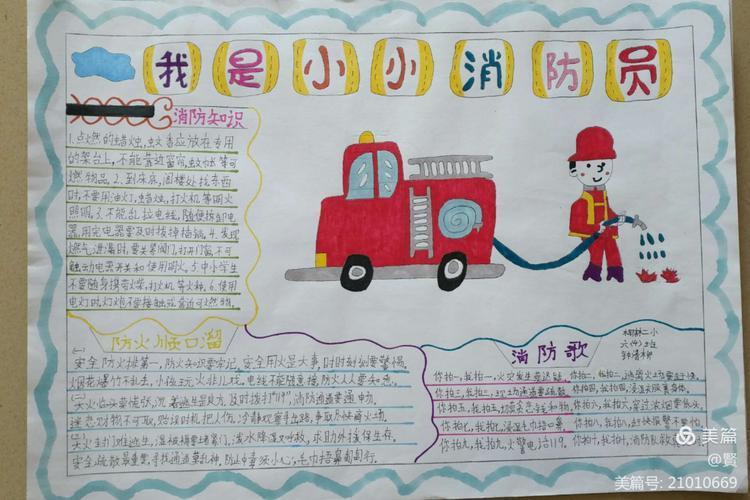 我是小小消防员
消防知识
1.点燃的蜡烛,蚊香应放在专用
的架台上,不能靠近窗帘,蚊帐等可
燃物品.2.到床底,阁楼处找东西
时,不要用油灯,蜡烛,打火机等明火
照明.3.不能乱拉电线,随便拆卸电
器,用完电器要及时拔掉插销.4.发现
燃气泄漏时,要关紧阀门,打开门窗,不可
触动电器开关和使用明火.5.中小学生
不要随身携带火柴,打火机等火种.6.使用
电灯时,灯泡不要接触或靠近可燃物.
防火顺口溜
(一)
安全防火排第一,防火知识要牢记,安全用火是大事,时时刻刻要警惕.
烟花爆竹不乱丢,小孩玩火非儿戏,电线不能随意接,防火人人要知悉.
(二)
火临头要慌张,沉着逃生是良方,及时拨打"119",消防通道要通畅.
迷恋财物不可取,贻误时机把人伤,冷静观察寻出路,争取尽快离火场.
(三)
大火封门难逃生,湿被褥要堵紧门,泼水降温
求助外援保生存.
安全疏散最重要,寻找通道莫乱神,防止中毒须小心,毛巾捂鼻匍匐行.
消防歌
柳林二小
你拍一,我拍一,火灾发生莫迟疑.
你拍三,我拍三,
你拍五,我拍五,
你拍七,我拍七,浸湿毛巾捂口鼻.
你拍九,我拍九,火警电话119.
你拍二,我拍二,
你拍四,我拍四,
你拍六,我拍六,穿过浓烟要低头.
你拍八,我拍八,
你拍十,我拍十,消防队
美篇
@贤
美篇号: 21010669